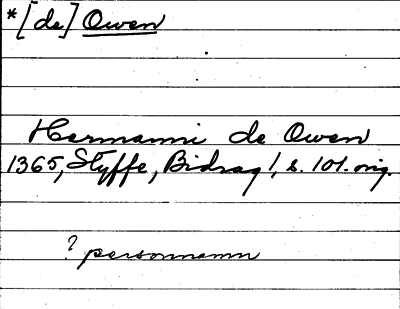 *[de] Owen
Hermanni de Owen
1365, Styffe, Bidrag 1, s. 101. orig.
? personnamn